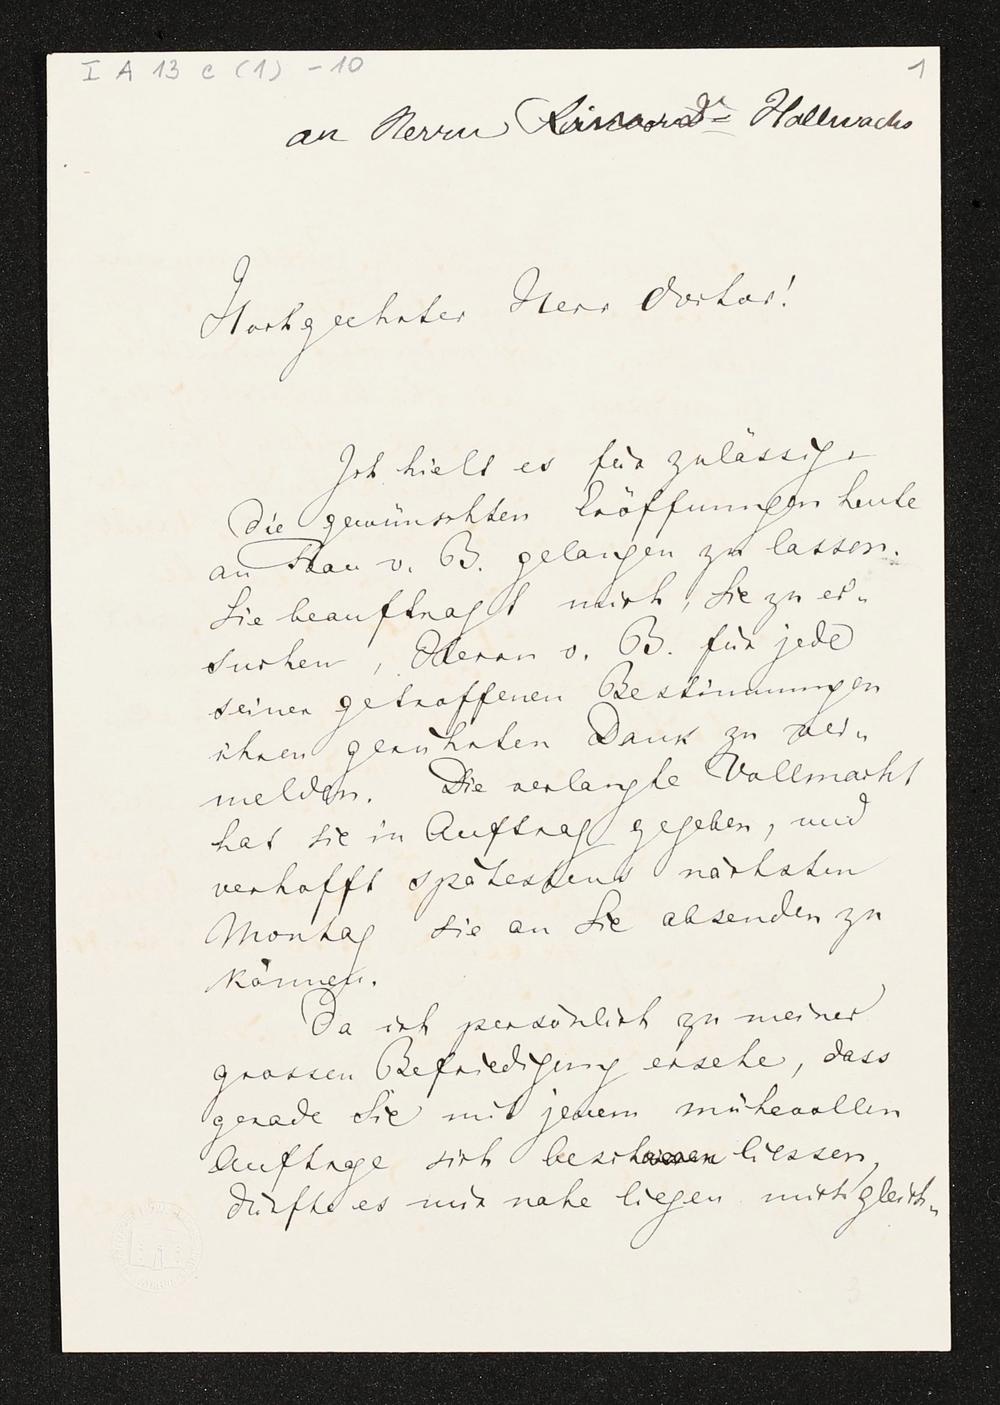 I A 13 c (1) - 10
1
an Herrn Dr Hallwachs
Hochgeehrter Herr Doctor!
Ich hielt es für zulässig,
die gewünschten Eröffnungen heute
an Frau v. B. gelangen zu lassen.
Sie beauftragt mich, Sie zu er-
suchen, Herrn v. B. für jede
seiner getroffenen Bestimmungen
ihren gerührten Dank zu ver-
melden. Die verlangte Vollmacht
hat sie in Auftrag gegeben, und
verhofft spätestens nächsten
Montag sie an Sie absenden zu
können.
Da ich persönlich zu meiner
grossen Befriedigung ersehe, dass
gerade Sie mit jenem mühevollen
Auftrage sich liessen,
dürfte es mir nahe liegen mich gleich-